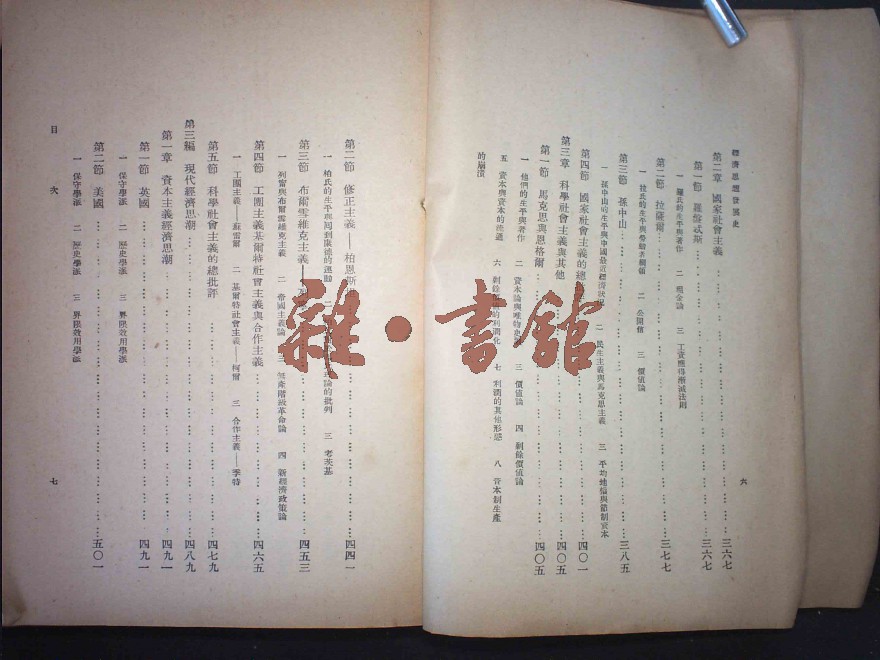 經濟思想發展史
第二章 國家社會主義……三六七
第一節 羅[?]忒斯……三六七
一 羅氏的生平與著作 二 現金論 三 工資應得漸減法則
第二節 拉薩爾……三七七
一 拉氏的生平與勞動者綱領 二 公開信 三 價值論
第三節 孫中山……三八五
一 孫中山的生平與中國最近經濟狀況 二 民生主義與馬克思主義 三 平均地權與節制資本
第四節 國家社會主義的總……四〇一
第三章 科學社會主義與其他……四〇五
第一節 馬克思與恩格爾……四〇五
一 他們的生平與著作 二 資本論與唯物史 三 價值論 四 剩餘價值論
五 資本與資本的流通 六 剩餘 的利潤化 七 利潤的其他形態 八 資本制生產
的崩潰
六
第二節 修正主義——柏恩斯……四四一
一 柏氏的生平與回到康德的運動 二 理論的批判 三 考茨基
第三節 布爾雪維克主義——……四五三
一 列甯與布爾雪維克主義 二 帝國主義論 三 無產階級革命論 四 新經濟政策論
第四節 工團主義基爾特社會主義與合作主義……四六五
一 工團主義——蘇雷爾 二 基爾特社會主義——柯爾 三 合作主義——季特
第五節 科學社會主義的總批評……四七九
第三編 現代經濟思潮……四八九
第一章 資本主義經濟思潮……四九一
第一節 英國……四九一
一 保守學派 二 歷史學派 三 界限效用學派
第二節 美國……五〇一
一 保守學派 二 歷史學派 三 界限效用學派
目次
七
雜·書館